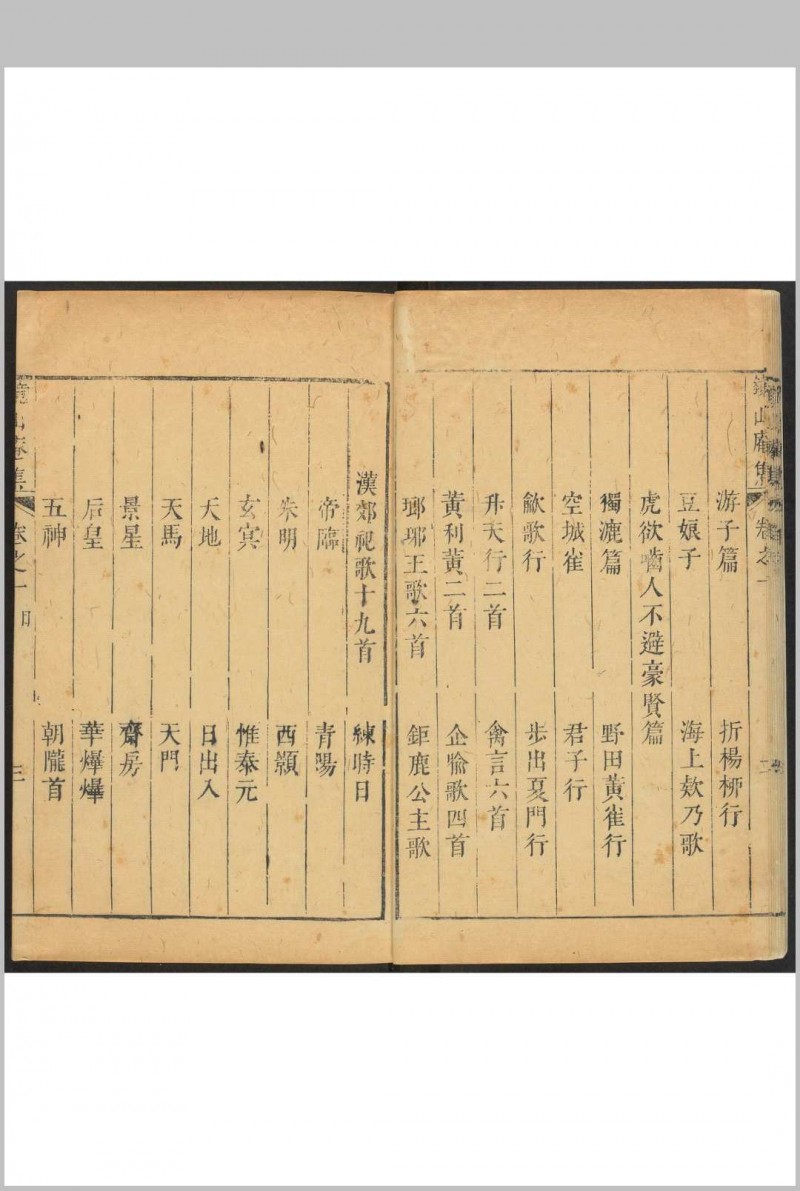 鏡山庵集 卷之一 二
游子篇 折楊柳行
豆娘子 海上欸乃歌
虎欲嚙人不避豪賢篇
獨漉篇 野田黃雀行
空城雀 君子行
歈歌行 步出夏門行
升天行二首 禽言六首
黃利黃二首 企喻歌四首
瑯琊王歌六首 鉅鹿公主歌
漢郊祀歌十九首 練時日
帝臨 青陽
朱明 西顥
玄冥 惟泰元
天地 日出入
天馬 天門
景星 齋房
后皇 華爗爗
五神 朝隴首
鏡山庵集 卷之一 目 三